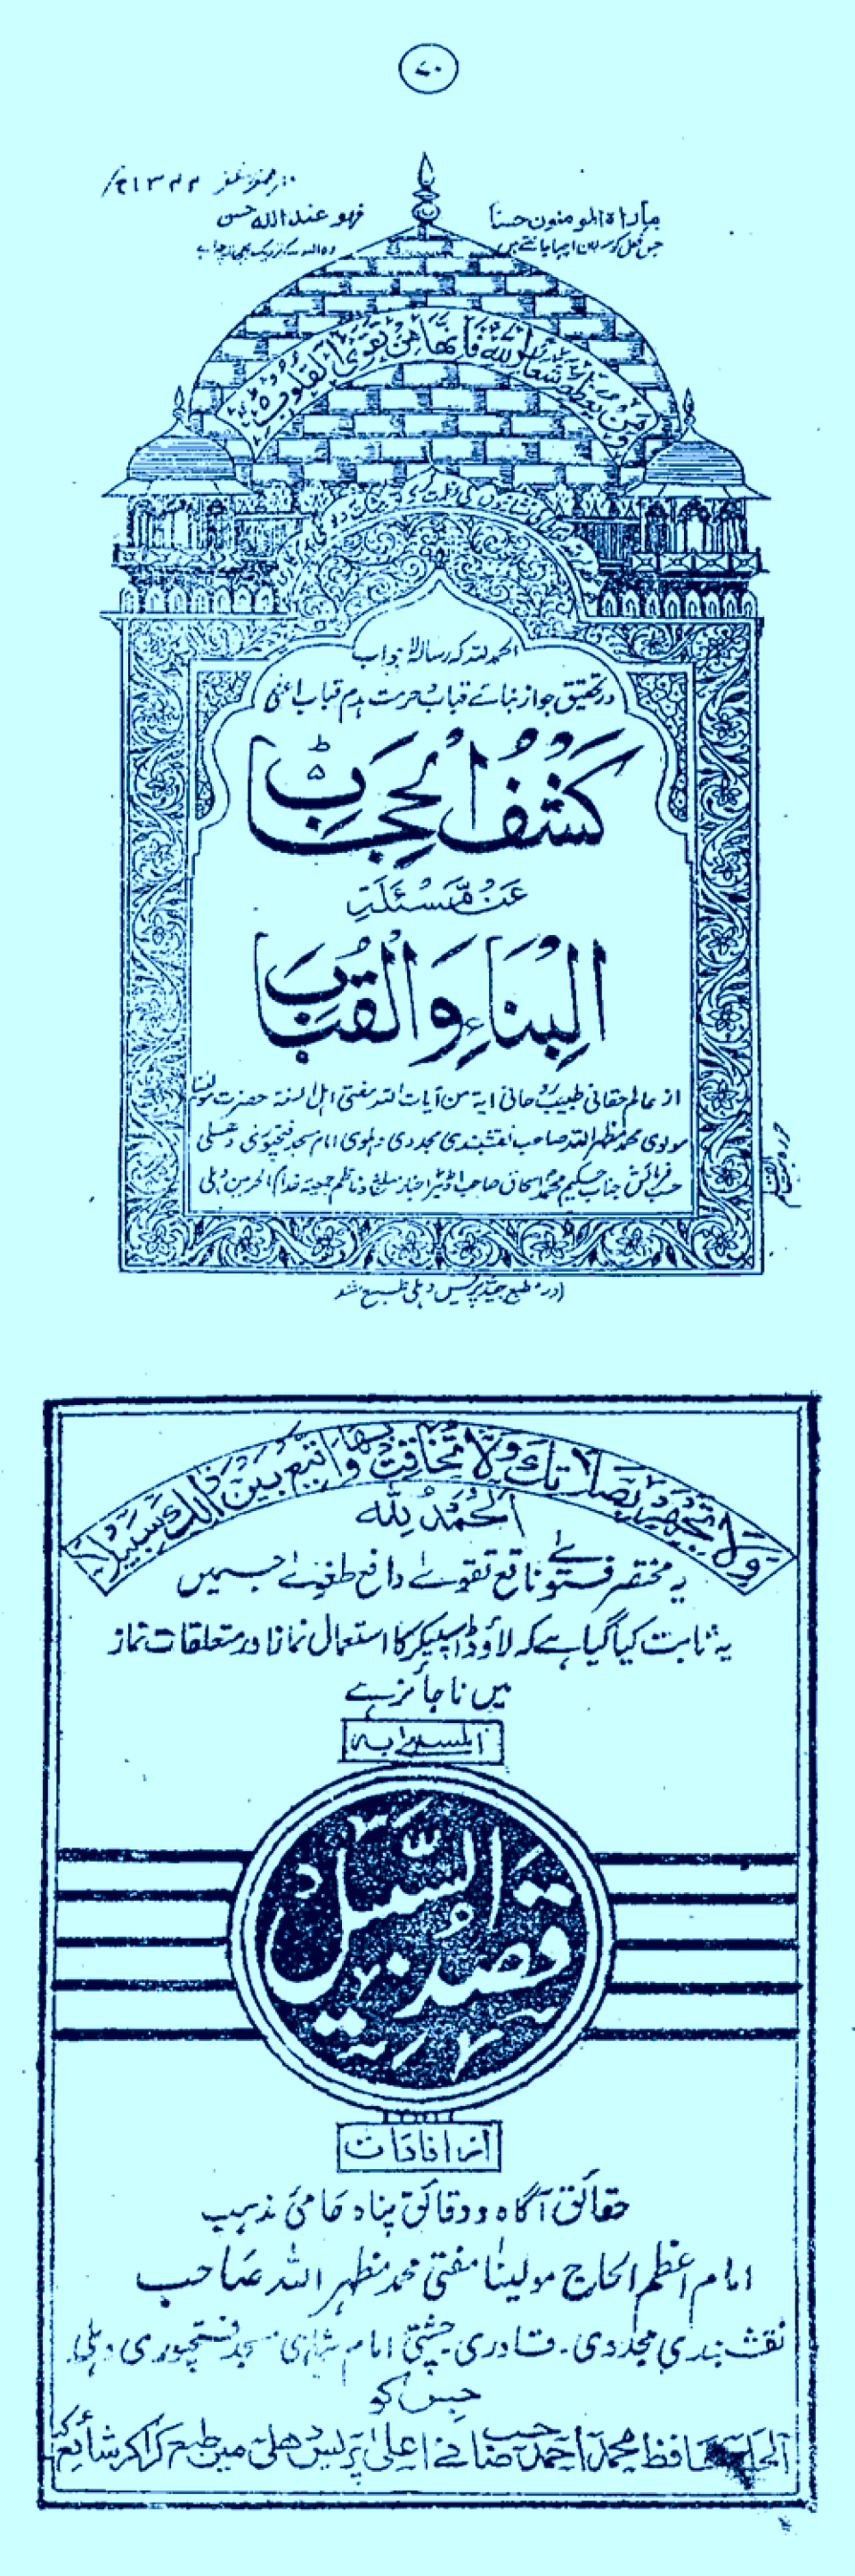 ۷۰
ماراہ المومنون حسنا
فهو عند الله حسن
جس فعل کو مسلمان اچھا جانتے ہیں
وہ اللہ کے نزدیک بھی اچھا ہے
ومن يعظم شعائر الله فانها من تقوى القلوب
الحمد للہ کہ رسالہ لاجواب
در تحقیق جواز بنائے قباب و حرمت ہدم قباب اعنی
كَشْفُ الْحِجَابِ
عَنْ مَّسْئَلَةِ
الْبِنَاءِ وَالْقُبَابِ
از عالم حقانی طبیب روحانی آیة من آیات اللہ مفتی اہل السنۃ حضرت مولٰنا
مولوی محمد مظہر اللہ صاحب نقشبندی مجددی دہلوی امام مسجد فتحپوری دہلی
حسب فرمائش جناب حکیم محمد اسحاق صاحب اڈیٹر اخبار مبلغ و ناظم جمعیۃ خدام الحرمین دہلی
در مطبع جید پریس دہلی طبع شد
ولا تجهر بصلاتك ولا تخافت بها وابتغ بين ذلك سبيلا
اَلْحَمْدُ لِلّٰه
یہ مختصر فتوٰے نافع تقوےٰ دافع طغوےٰ جسمیں
یہ ثابت کیا گیا ہے کہ لاؤڈ اسپیکر کا استعمال نماز اور متعلقات نماز
میں ناجائز ہے
المسمٰی بہ
قصد السبیل
از افادات
حقائق آگاہ و دقائق پناہ حامیٔ مذہب
امام اعظم الحاج مولینٰا مفتی محمد مظہر اللہ صاحب
نقشبندی مجددی۔ قادری۔ چشتی امام شاہی مسجد فتحپوری دہلی۔
جس کو
الحاج حافظ محمد احمد صاحب نے اعلیٰ پریس دھلی میں طبع کرا کر شائع کیا